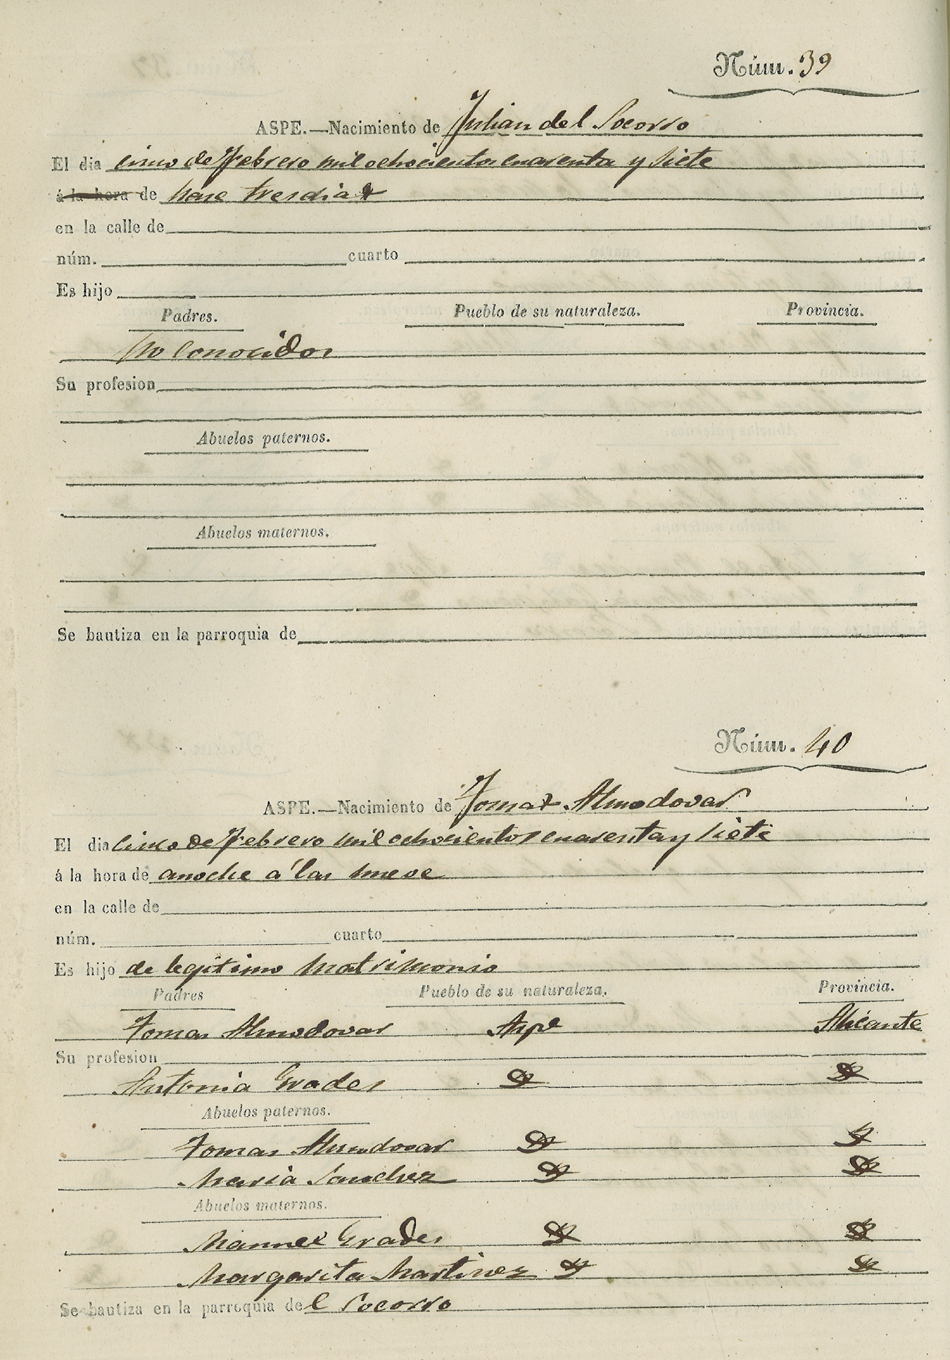 Núm. 39
ASPE.—Nacimiento de Julian del Socorro
El dia cinco de Febrero mil ochocientos cuarenta y siete
á la hora de hase tres dias
en la calle de
núm. cuarto
Es hijo
Padres. Pueblo de su naturaleza. Provincia.
No Conocidos
Su profesion
Abuelos paternos.
Abuelos maternos.
Se bautiza en la parroquia de
Núm. 40
ASPE.—Nacimiento de Tomas Almodovar
El dia cinco de Febrero mil ochocientos cuarenta y siete
á la hora de anoche a las nueve
en la calle de
núm. cuarto
Es hijo de legitimo matrimonio
Padres Pueblo de su naturaleza. Provincia.
Tomas Almodovar Aspe Alicante
Su profesion
Antonia Grades
Abuelos paternos.
Tomas Almodovar
Maria Sanchez
Abuelos maternos.
Manuel Grades
Margarita Martinez
Se bautiza en la parroquia del Socorro